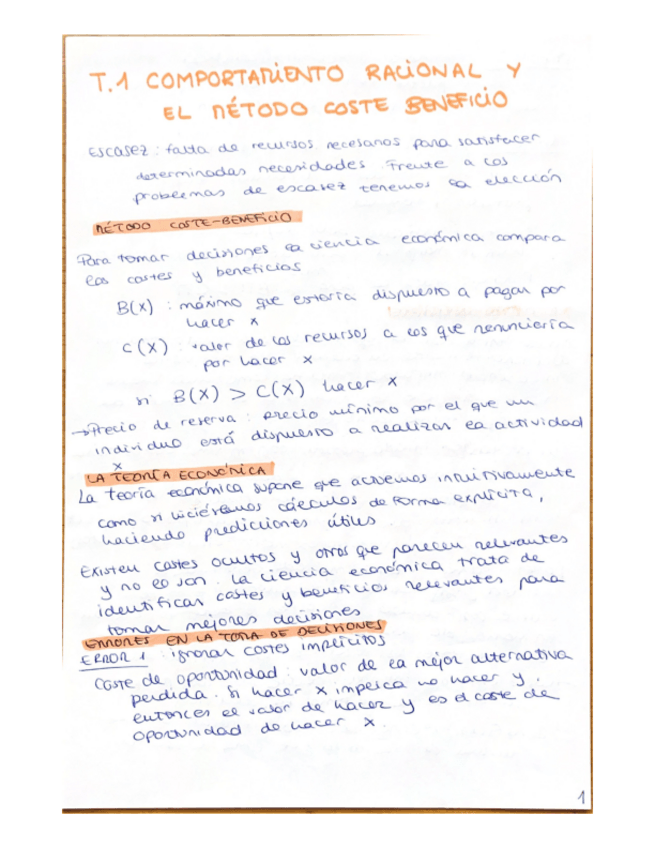 T.1 COMPORTAMIENTO RACIONAL Y
EL MÉTODO COSTE BENEFICIO
Escasez : falta de recursos necesarios para satisfacer
determinadas necesidades. Frente a los
problemas de escasez tenemos la elección
MÉTODO COSTE-BENEFICIO
Para tomar decisiones la ciencia económica compara
los costes y beneficios
B(x) : máximo que estaría dispuesto a pagar por
hacer x
C(x) : valor de los recursos a los que renunciaría
por hacer x
si B(x) > C(x) hacer x
→Precio de reserva : precio mínimo por el que un
individuo está dispuesto a realizar la actividad
x
LA TEORÍA ECONÓMICA
La teoría económica supone que actuemos intuitivamente
como si hiciéramos cálculos de forma explícita,
haciendo predicciones útiles.
Existen costes ocultos y otros que parecen relevantes
y no lo son. La ciencia económica trata de
identificar costes y beneficios relevantes para
tomar mejores decisiones
ERRORES EN LA TOMA DE DECISIONES
ERROR 1 : ignorar costes implícitos
Coste de oportunidad : valor de la mejor alternativa
perdida. Si hacer x implica no hacer y.
entonces el valor de hacer y es el coste de
oportunidad de hacer x.
1